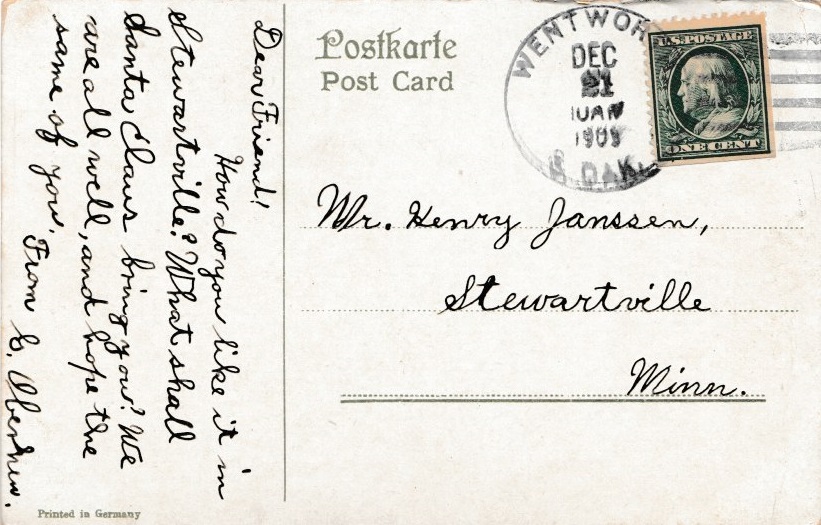 Dear Friend!
How do you like it in
Stewartville? What shall
Santa Claus bring you? We
are all well, and hope the
same of you.
From E.
Postkarte
Post Card
WENTWOR
DEC
21
1909
S. DAK.
U.S. POSTAGE
ONE CENT
Mr. Henry Janssen,
Stewartville
Minn.
Printed in Germany